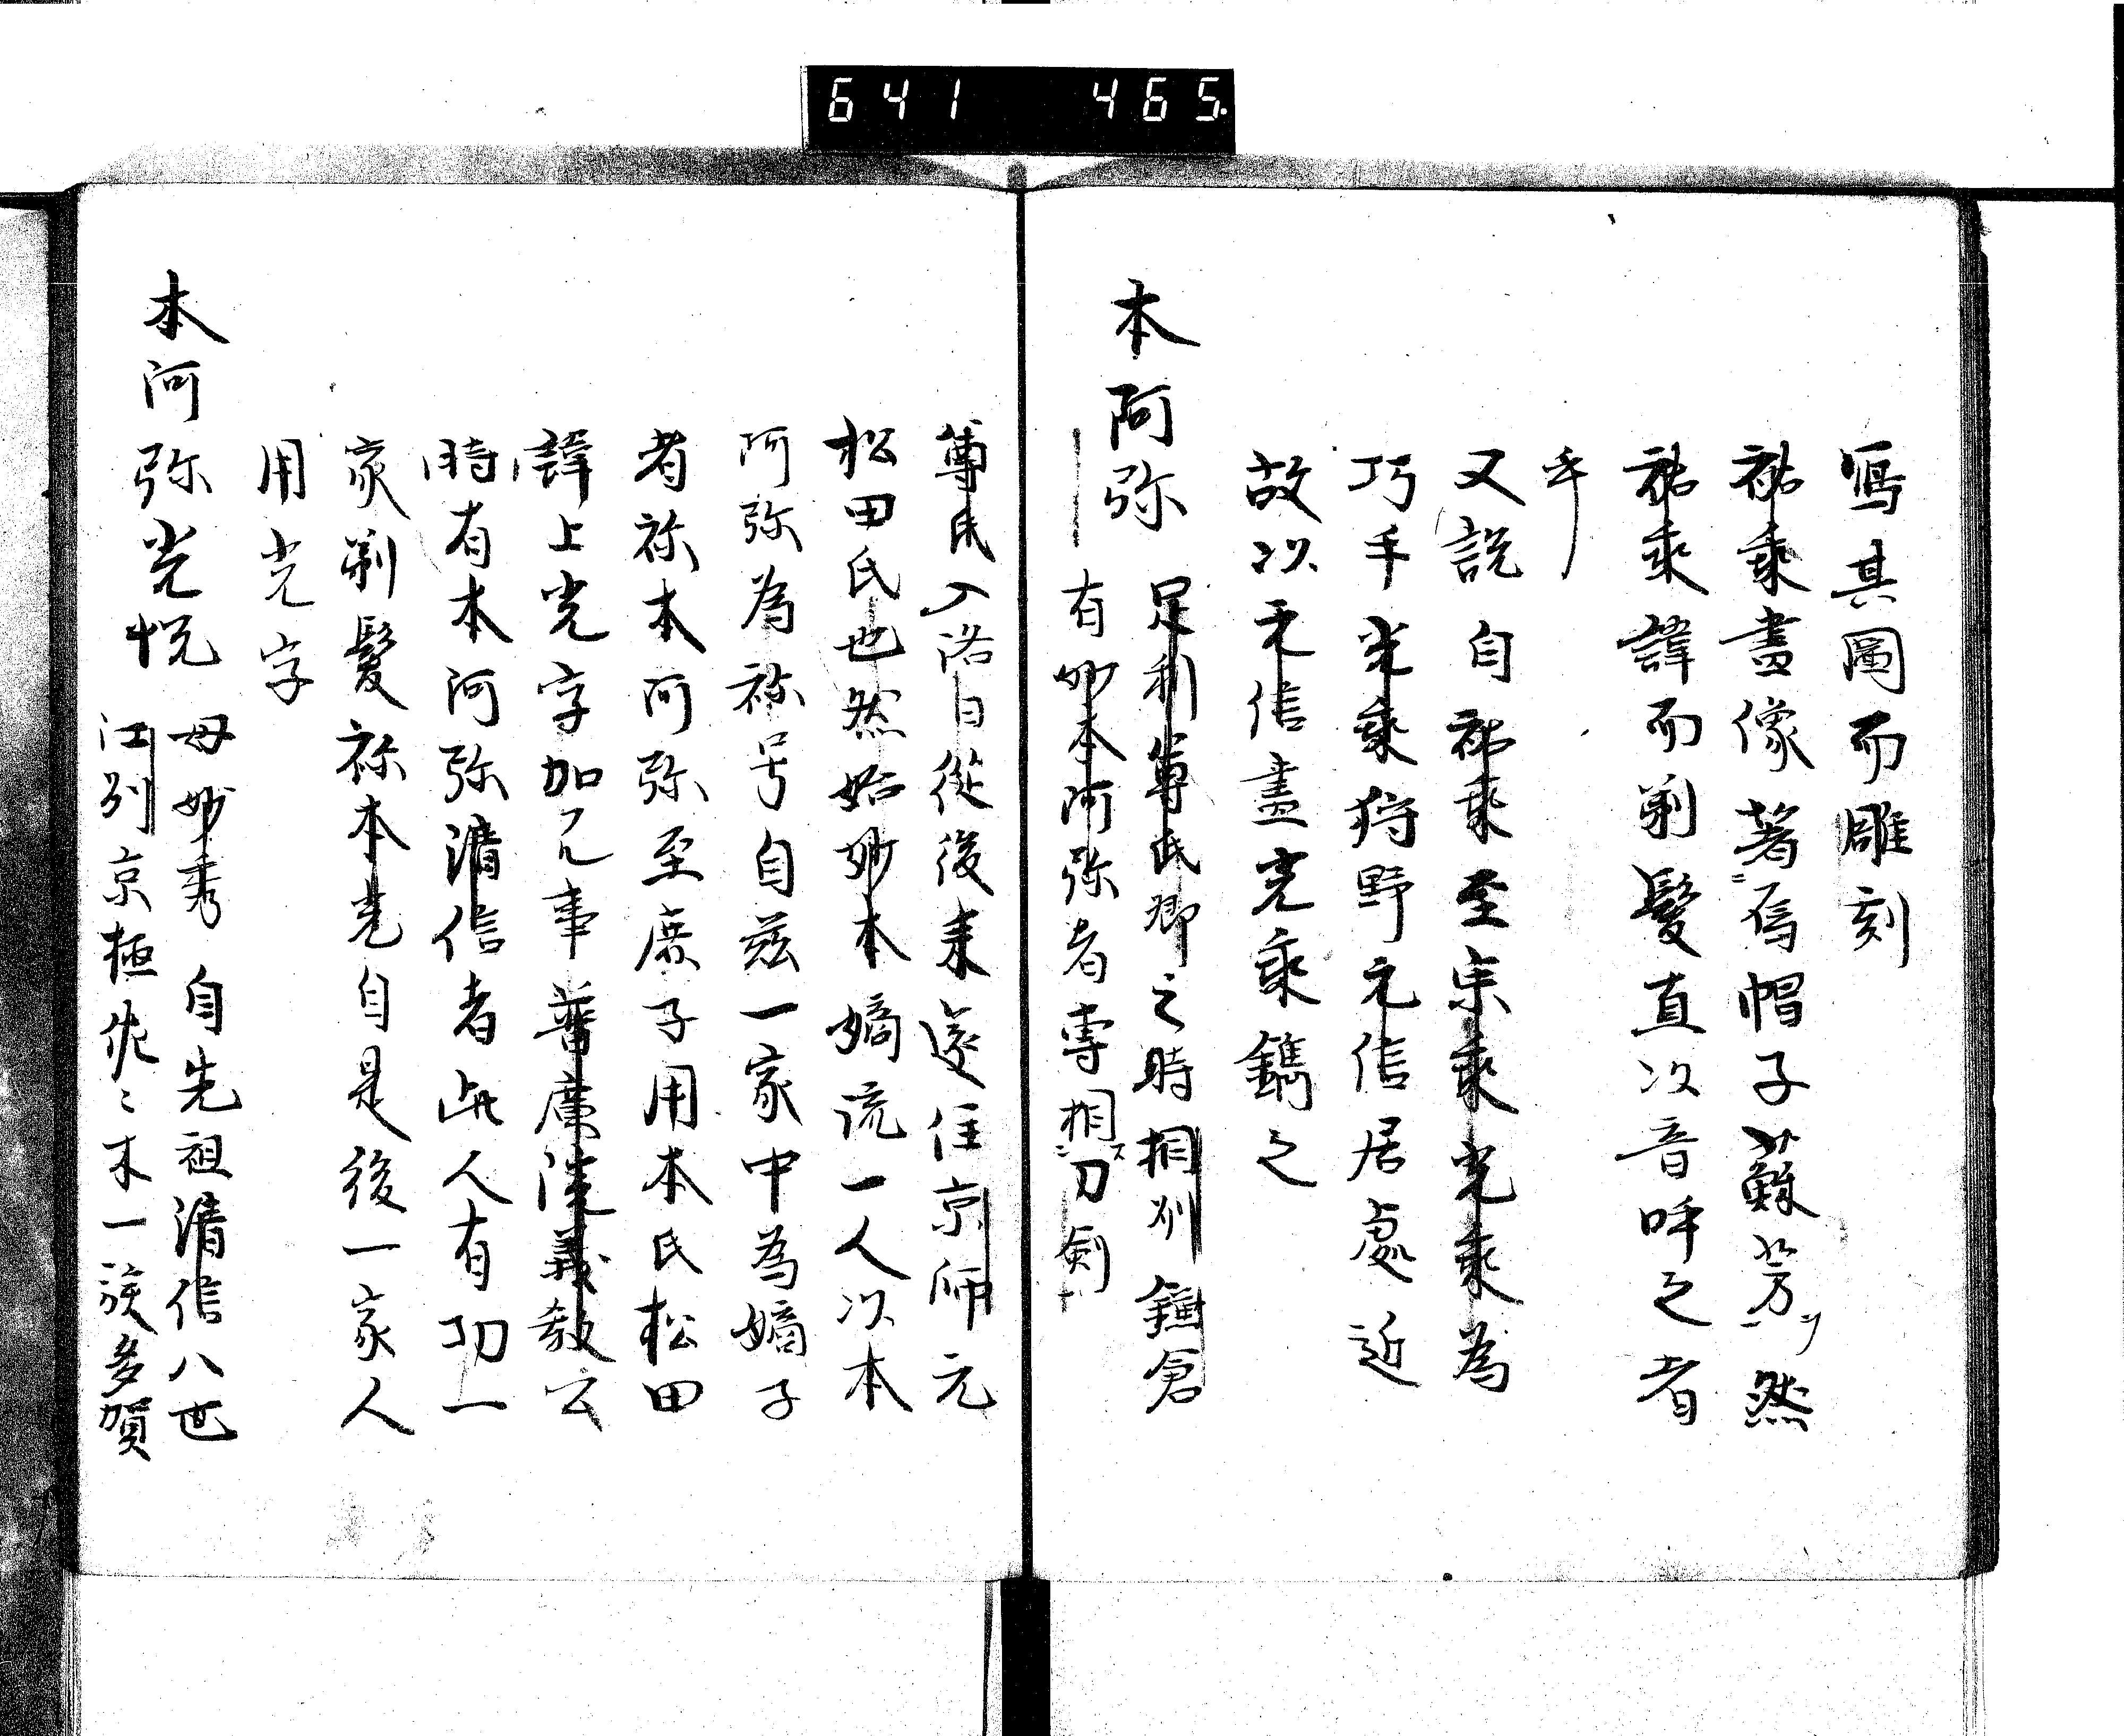 641 465
寫其圖而雕刻
祐乘畫像著烏帽子蘇芳然
祐乘諱而剃髮直以音呼之者
乎
又説自祐乘至宗乘光乘為
巧手光乘狩野元信居處近
故以元信畫光乘鐫之
本阿弥
足利尊氏卿之時相州鎌倉
有妙本阿弥者専相刀剣
尊氏入洛日從後来遂住京師元
松田氏也然始妙本嫡流一人以本
阿弥為称号自茲一家中為嫡子
者称本阿弥至庶子用本氏松田
諱上光字加冗事普廣院義教公
時有本阿弥清信者此人有功一
家剃髮称本光自是後一家人
用光字
本阿弥光悦
母妙秀自先祖清信八世
江州京極佐々木一族多賀